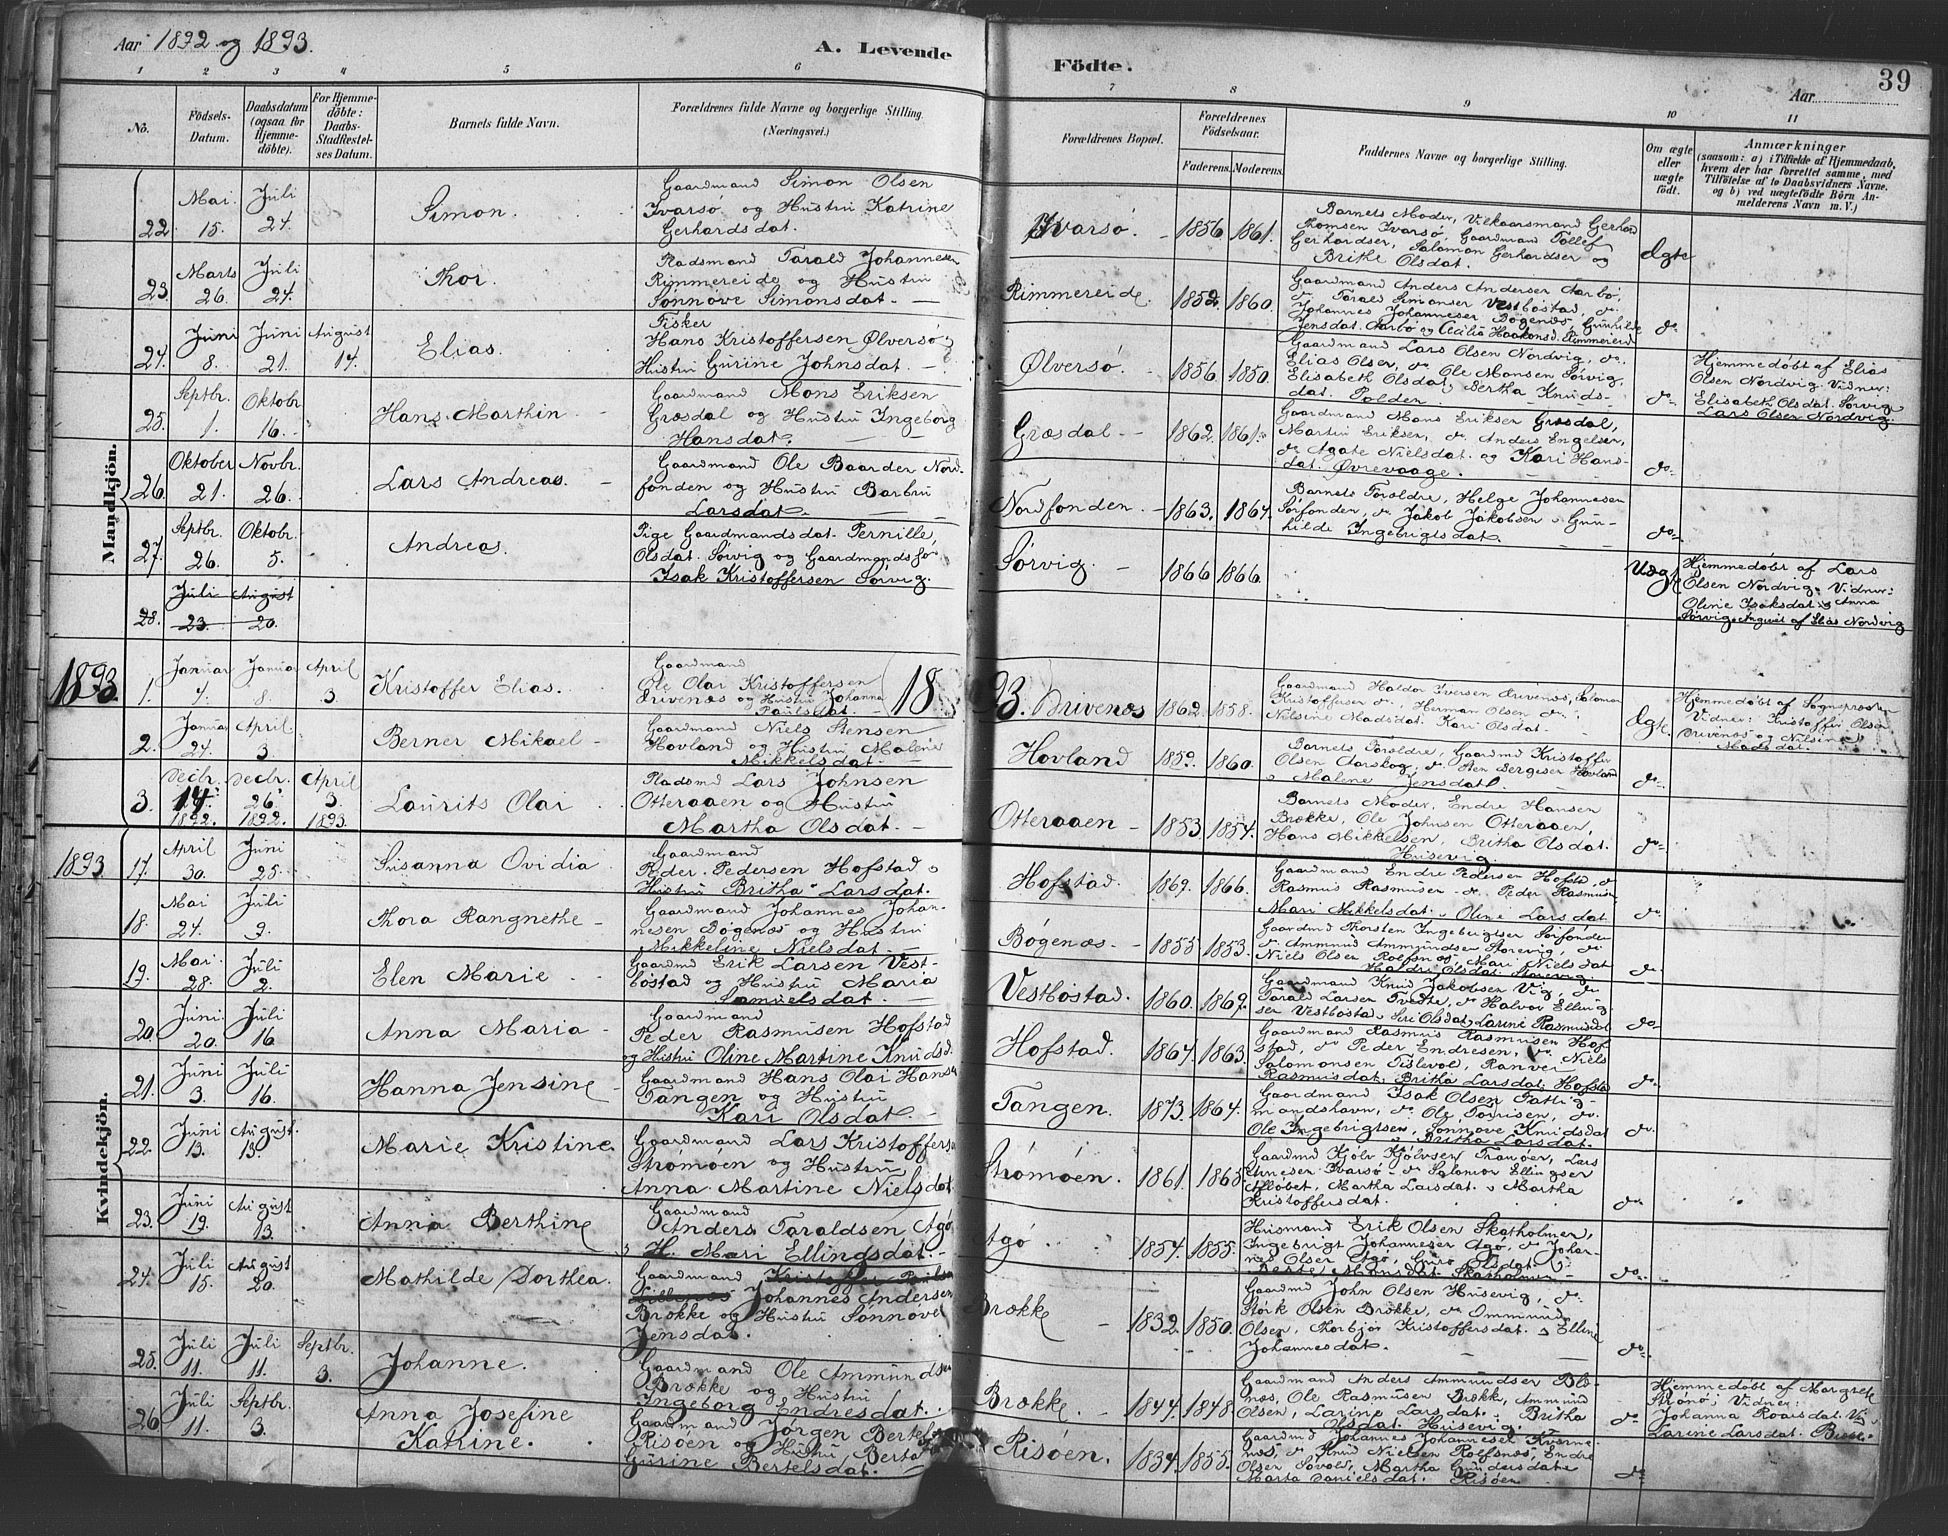 Aar 1892 og 1893.
A. Levende
Födte.
39
Aar
1 2 3 4 5 6 7 8 9 10 11
No.
Födsels-
Datum.
Daabsdatum
(ogsaa for
Hjemme-
döbte).
For Hjemme-
döbte:
Daabs-
Stadfæstel-
ses Datum.
Barnets fulde Navn.
Forældrenes fulde Navne og borgerlige Stilling
(Næringsvei.)
Forældrenes Bopæl.
Forældrenes
Födselsaar.
Faderens. Moderens.
Faddernes Navne og borgerlige Stilling.
Om ægte
eller
uægte
födt.
Anmærkninger
(saasom: a) i Tilfælde af Hjemmedaab,
hvem der har forrettet samme, med
Tilföielse af to Daabsvidners Navne,
og b) ved uægtefödte Börn An-
melderens Navn m. V.)
Mandkjön.
22. Mai 15. Juli 24. Simon.
Gaardmand Simon Olsen
Ivarsø og Hustru Katrine
Gerhardsdat.
Ivarsø. 1856 1861.
Barnets Moder, Vilkaarsmand Gerhard
Thomsen Ivarsø, Gaardmand Tollef
Gerhardsen, Salomon Gerhardsen og
Brithe Olsdat.
Ægte
23. Marts 26. Juli 24. Thor.
Pladsmand Tarald Johannesen
Rimmereide og Hustru
Sønnøve Simonsdat.
Rimmereide. 1852. 1860.
Gaardmand Anders Andersen Aarbø,
do Tarald Simonsen Vestbøstad, do
Johannes Johannesen Bøgenæs, Gunhilde
Jensdat. Aarbø og Cecilia Haakonsd. Rimmereid
do
24. Juni 8. Juni 21. August 14. Elias.
Fisker
Hans Kristoffersen Ølversø og
Hustru Gurine Johnsdat.
Ølversø. 1856. 1850.
Gaardmand Lars Olsen Nordvig, do
Elias Olsen, do Ole Monsen Sørvig,
Elisabeth Olsdat, Bertha Knuds-
dat. Polden.
do
Hjemmedøbt af Elias
Olsen Nordvig. Vidner:
Elisabeth Olsdat. Sørvig
Lars Olsen Nordvig.
25. Septbr. 1. Oktobr. 16. Hans Marthin
Gaardmand Mons Eriksen
Græsdal og Hustru Ingeborg
Hansdat.
Græsdal 1862. 1861.
Gaardmand Mons Eriksen Græsdal,
Martin Eriksen, do Anders Engelsen,
do Agate Nielsdat. og Kari Hans-
dat. Øvrevaage.
do
26. Oktober 21. Novbr. 26. Lars Andreas.
Gaardmand Ole Baardsen Nord-
fonden og Hustru Barbru
Larsdat.
Nordfonden 1863. 1864.
Barnets Forældre, Helge Johannesen
Sørfonden, do Jakob Jakobsen, Gun-
hilde Ingebrigtsdat.
do
27. Septbr. 26. Oktobr. 5. Andreas.
Pige Gaardmandsdat. Pernille
Olsdat. Sørvig og Gaardmandssø.
Isak Kristoffersen Sørvig.
Sørvig. 1866 1866.
Uægte
Hjemmedøbt af Lars
Olsen Nordvig. Vidner:
Oline Isaksdat. Anna
Sørvig. Angivet af Elias Nordvig
28. Juli 23. August 20.
1893
1893.
1. Januar 7. Januar 8. April 3 Kristoffer Elias.
Gaardmand
Ole Olai Kristoffersen
Drivenæs og Hustru Johanna
Paulsdat.
Drivenæs 1862. 1858.
Gaardmand Haldor Iversen Drivenæs, Salomon
Kristoffersen do, Herman Olsen do,
Nilsine Madsdat. Kari Olsdat.
Ægte.
Hjemmedøbt af Sogneprosten
Vidner: Kristoffer Olsen
Drivenæs og Nilsine
Madsdat.
2. Januar 24. April 3 Berner Mikael
Gaardmand Niels Stensen
Hovland og Hustru Malene
Mikkelsdat.
Hovland 1859. 1860.
Barnets Forældre, Gaardmd Kristoffer
Olsen Aarskog, do Sten Bergesen Hovland
Malene Jensdat.
do
3. Decbr. 14. 1892. Decbr. 26. 1892. April 3. 1893. Laurits Olai
Pladsmd Lars Johnsen
Otteraaen og Hustru
Martha Olsdat.
Otteraaen 1853. 1854.
Barnets Moder, Endre Hansen
Brække, Ole Johnsen Otteraaen,
Hans Mikkelsen, Britha Olsdat.
Husevig
do
Kvindekjön.
1893
17. April 30. Juni 25. Susanna Ovidia
Gaardmand
Peder Pedersen Hofstad
Hustru Britha Larsdat.
Hofstad. 1869. 1866.
Gaardmand Endre Pedersen Hofstad, do
Rasmus Rasmusen do Peder Rasmusen
Mari Mikkelsdat. Oline Larsdat.
do
18. Mai 24. Juli 9. Thora Rangnethe
Gaardmand Johannes Johan-
nesen Bøgenæs og Hustru
Mikkeline Nielsdat.
Bøgenæs. 1855 1853.
Gaardmd Thorsten Ingebrigtsen Sørfonden
do Ammund Ammundsen Storevig,
Niels Olsen Rolfsnæs, Mari Nielsdat
Haldis Olsdat. Storevig.
do
19. Mai 28. Juli 2. Elen Marie
Gaardmd Erik Larsen Vest-
bøstad og Hustru Maria
Samuelsdat.
Vestbøstad. 1860. 1869.
Gaardmand Knud Jakobsen Vig, do
Tarald Larsen Tvedte, do Halvor Elling-
sen Vestbøstad, Siri Olsdat, Larine Rasmusdat
do
20. Juni 20. Juli 16. Anna Maria
Gaardmand
Peder Rasmusen Hofstad
og Hustru Oline Martine Knudsd.
Hofstad. 1864. 1863.
Gaardmand Rasmus Rasmusen Hof-
stad, do Peder Endresen, do Niels
Salomonsen Fislevol, Ranvei
Rasmusdat. Britha Larsdat. Hofstad
do
21. Juni 3. Juli 16. Hanna Jensine
Gaardmand Hans Olai Hansen
Tangen og Hustru
Kari Olsdat
Tangen. 1873. 1864.
Gaardmand Isak Olsen Fatlig-
mandshavn, do Ole Tørrisen, do
Ole Ingebrigtsen, Sønnøve Knudsdat
Britha Larsdat.
do
22. Juni 13. August. 13. Marie Kristine
Gaardmand Lars Kristoffersen
Strømøen og Hustru
Anna Martine Nielsdat
Strømøen. 1861. 1865
Gaardmd Kjølv Kjølvsen Tranøen, Lars
Ivarsø, do Salomon Ellingsen
Martha Larsdat. Martha
Kristoffersdat.
do
23. Juni 19. August 13. Anna Berthine
Gaardmand
Anders Taraldsen Agø
H. Mari Ellingsdat.
Agø 1854. 1855.
Husmand Erik Olsen Skatholmen,
Ingebrigt Johannesen Agø, do Johan-
nes Olsen Agø, Guro Olsdat
Berte Monsdat. Skatholmen
do
24. Juli 15. August 20. Mathilde Dorthea.
Gaardmand Kristoffer Paulsen
Johannes Andersen
Brække og Hustru Sønnøve
Jensdat.
Brække 1832. 1850.
Gaardmand John Olsen Husevig, do
Størk Olsen Brække, do Ommund
Olsen, Thorbjør Kristoffersdat. Elline
Johannesdat.
do
25. Juli 11. Juli 11. Septbr. 3. Johanne.
Gaardmand Ole Ammundsen
Brække og Hustru
Ingeborg Endresdat.
Brække. 1844. 1848.
Gaardmand Anders Ammundsen Blæ-
næs, Ole Rasmusen Brække, Ammund
Olsen, Larine Larsdat. Britha
Olsdat. Husevig.
do
Hjemmedøbt af Margrete
Strønø; Vidner:
Johanna Roarsdat.
Larine Larsdat. Brække
26. Juli 11. Septbr. 3. Anna Josefine
Katrine.
Gaardmand Jørgen Bertelsen
Risøen og Hustru Berta
Gurine Bertelsdat.
Risøen. 1834. 1855.
Gaardmand Johannes Johannesen Kverne-
næs, do Knud Nielsen Rolfsnæs, Endre
Olsen Søvold, Martha Gundersdat.
Marta Danielsdat. Risøen
do